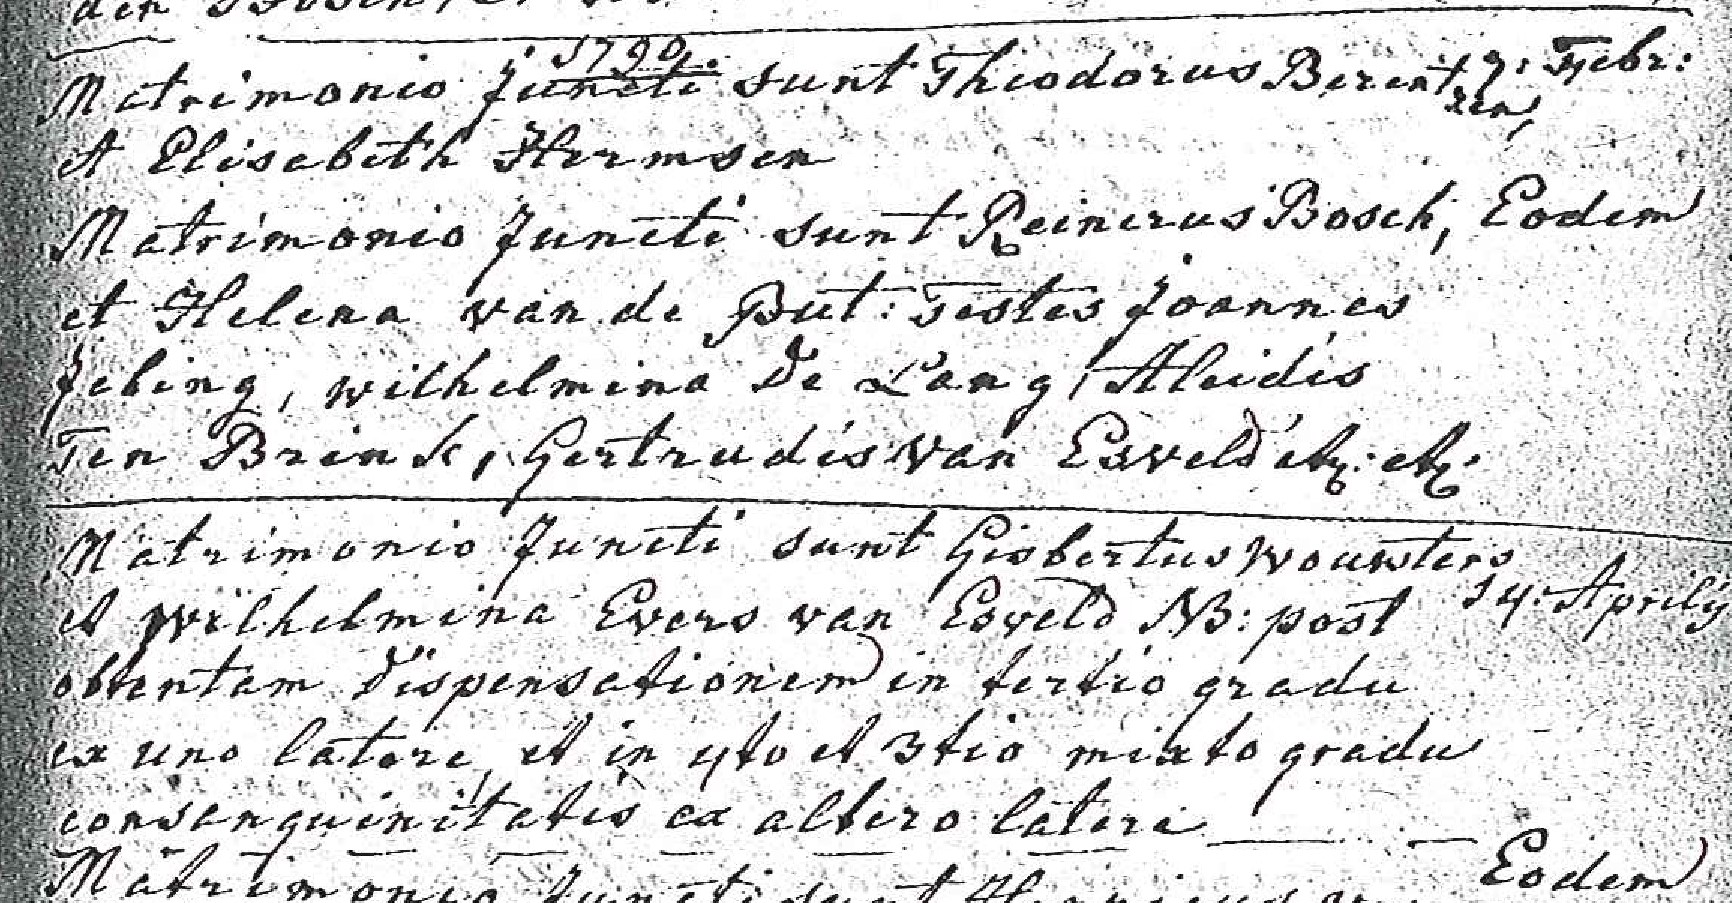 den Bosch, et
1790.
Matrimonio Juncti sunt Theodorus Berent 7: Febr:
zen,
et Elisabeth Hermsen
Matrimonio Juncti sunt Reinerus Bosch, Eodem
et Helena van de Put: Testes Joannes
Jebing, wilhelmina De Lang, Aleidis
Ten Brink, Gertrudis van Esveld etc: etc:
Matrimonio Juncti sunt Gisbertus Wouwters
et Wilhelmina Evers van Esveld NB: post 14: Aprilij
obtentam Dispensationem in tertio gradu
ex uno latere, et in 4to et 3tio mixto gradu
consanquinitatis ex altero latere
Matrimonio Juncti sunt Henricus Eodem